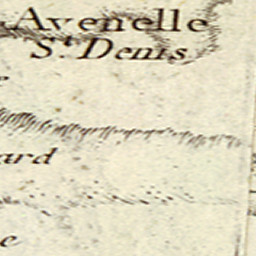 Avenelle
St. Denis
ard
e